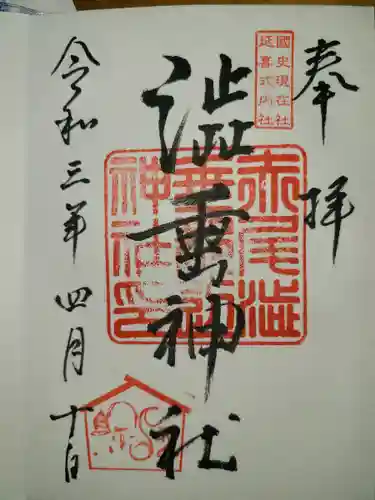 奉拝
國史現在社
延喜式内社
澁垂神社
赤尾澁
垂神社
神社印
令和三年四月十日